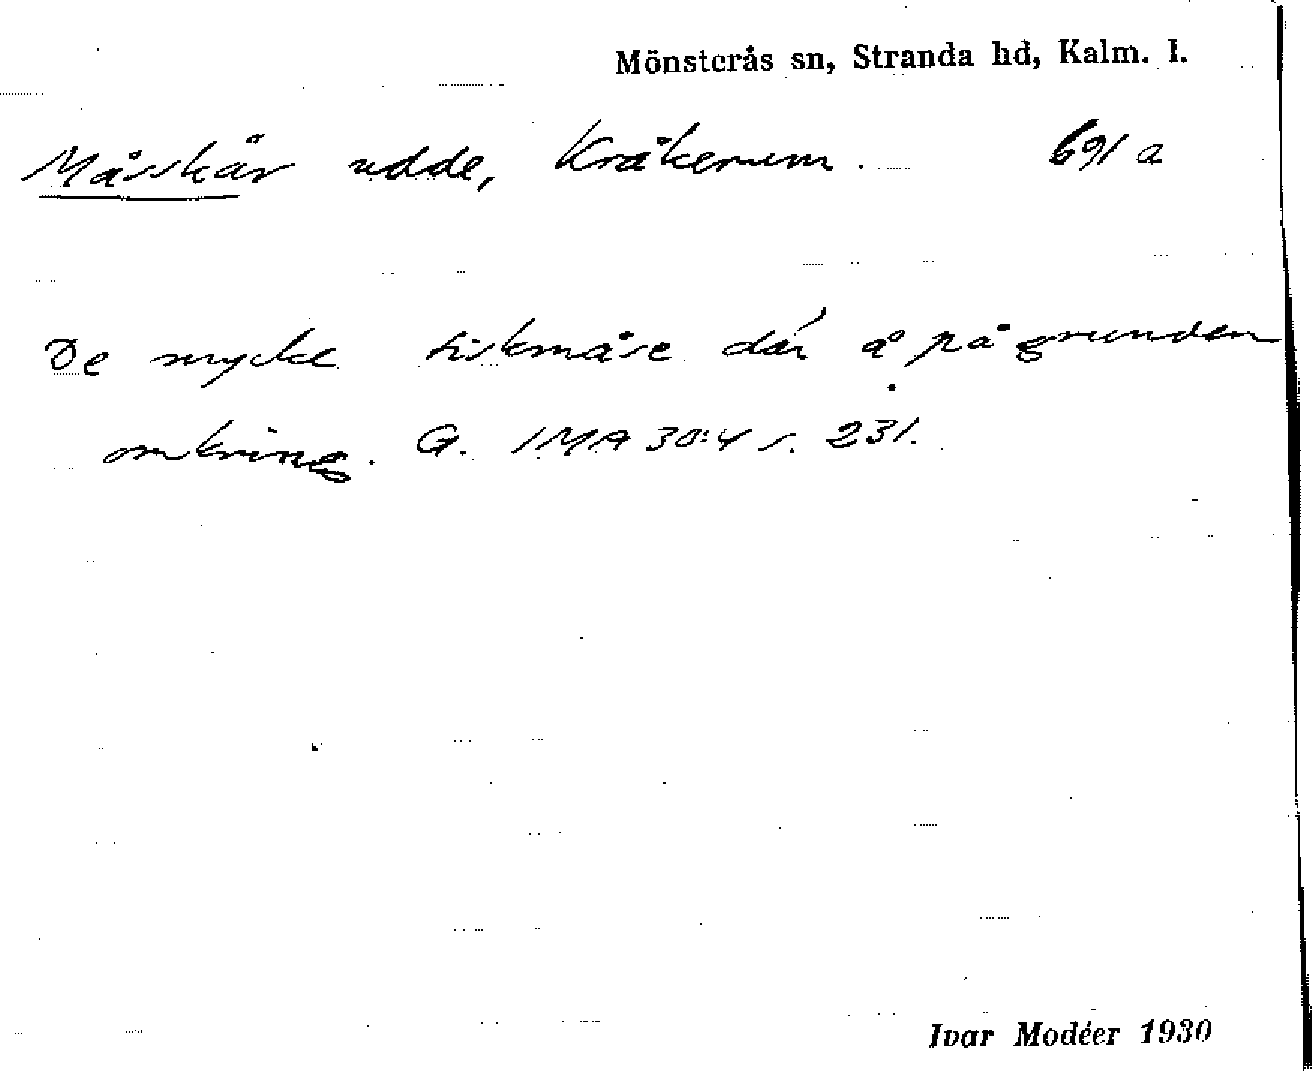 Mönsterås sn, Stranda hd, Kalm. l.
Måsskär udde, Kråkerum. 691 a
De mycke fiskmåse där å på grunden
omkring. G. IMA 30:4 s. 231.
Ivar Modéer 1930